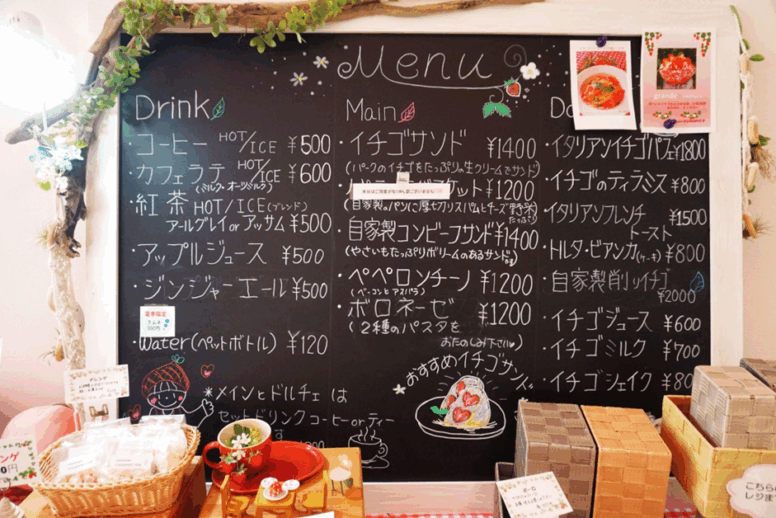 Menu
Drink
・コーヒー HOT/ICE ¥500
・カフェラテ HOT/ICE ¥600
(ミルク・オーツミルク)
・紅茶 HOT/ICE(ブレンド)
アールグレイ or アッサム ¥500
・アップルジュース ¥500
・ジンジャーエール ¥500
夏季限定
ラムネ
300円
・Water(ペットボトル) ¥120
※メインとドルチェは
セットドリンク コーヒー or ティー
Main
・イチゴサンド ¥1400
(パークのイチゴをたっぷりの生クリームでサンド)
ケット ¥1200
(自家製のパンに厚切りスパムとチーズ
たっぷり)
・自家製コンビーフサンド ¥1400
(やさいもたっぷりボリュームのあるサンド)
・ペペロンチーノ ¥1200
(ベーコンとアスパラ)
・ボロネーゼ ¥1200
(2種のパスタを
おたのしみ下さい)
おすすめイチゴサンド
Do
・イタリアンイチゴパフェ ¥1800
・イチゴのティラミス ¥800
・イタリアンフレンチ
トースト ¥1500
・トルタ・ビアンカ(ケーキ) ¥800
・自家製削りイチゴ
¥2000
・イチゴジュース ¥600
・イチゴミルク ¥700
・イチゴシェイク ¥80
こちら
レジま